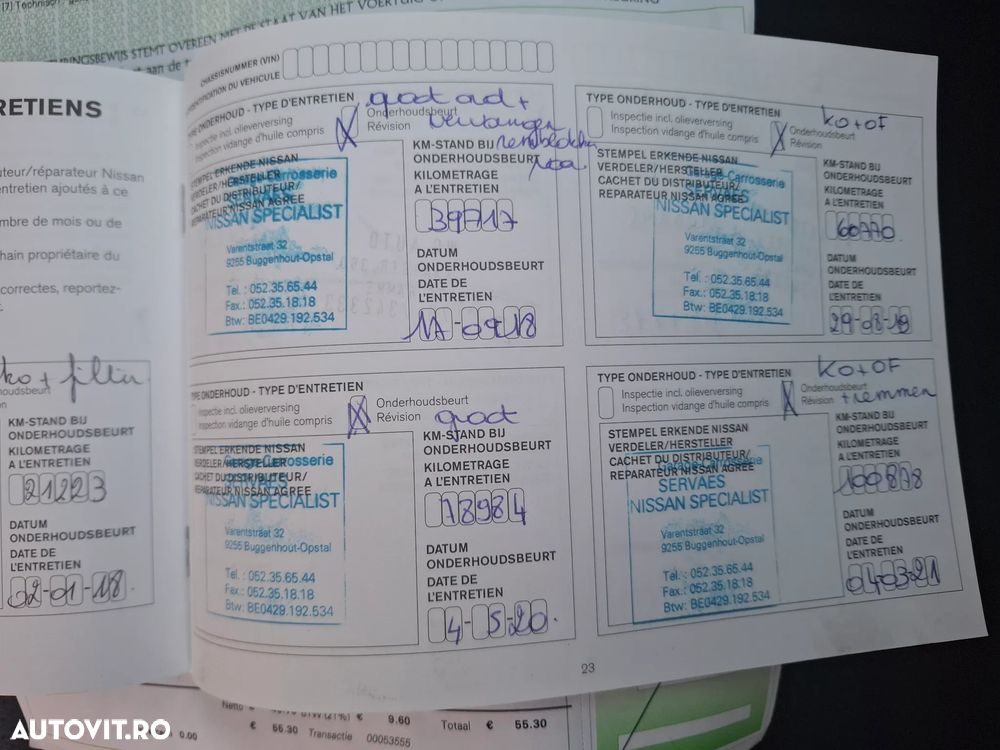 [7] Technisch
INGSBEWIJS STEMT OVEREEN MET DE STAAT VAN HET VOERTUIG
aan de
RETIENS
uteur/réparateur Nissan
entretien ajoutés à ce
mbre de mois ou de
hain propriétaire du
correctes, reportez-
ko + filter
noudsbeurt
KM-STAND BIJ
ONDERHOUDSBEURT
KILOMETRAGE
A L'ENTRETIEN
21223
DATUM
ONDERHOUDSBEURT
DATE DE
L'ENTRETIEN
02-01-18
CHASSISNUMMER (VIN)
IDENTIFICATION DU VEHICULE
TYPE ONDERHOUD - TYPE D'ENTRETIEN
Inspectie incl. olieverversing
Inspection vidange d'huile compris
X
Onderhoudsbeurt
Révision
groot ond +
STEMPEL ERKENDE NISSAN
VERDELER/HERSTELLER
CACHET DU DISTRIBUTEUR/
REPARATEUR NISSAN AGREE
Carrosserie
SERVAES
NISSAN SPECIALIST
Varentstraat 32
9255 Buggenhout-Opstal
Tel. : 052.35.65.44
Fax.: 052.35.18.18
Btw: BE0429.192.534
KM-STAND BIJ
ONDERHOUDSBEURT
KILOMETRAGE
A L'ENTRETIEN
39717
DATUM
ONDERHOUDSBEURT
DATE DE
L'ENTRETIEN
17-09-18
TYPE ONDERHOUD - TYPE D'ENTRETIEN
Inspectie incl. olieverversing
Inspection vidange d'huile compris
X
Onderhoudsbeurt
Révision
KO+OF
STEMPEL ERKENDE NISSAN
VERDELER/HERSTELLER
CACHET DU DISTRIBUTEUR/
REPARATEUR NISSAN AGREE
Carrosserie
SERVAES
NISSAN SPECIALIST
Varentstraat 32
9255 Buggenhout-Opstal
Tel. : 052.35.65.44
Fax.: 052.35.18.18
Btw: BE0429.192.534
KM-STAND BIJ
ONDERHOUDSBEURT
KILOMETRAGE
A L'ENTRETIEN
60770
DATUM
ONDERHOUDSBEURT
DATE DE
L'ENTRETIEN
29-08-19
TYPE ONDERHOUD - TYPE D'ENTRETIEN
Inspectie incl. olieverversing
Inspection vidange d'huile compris
X
Onderhoudsbeurt
Révision
groot
STEMPEL ERKENDE NISSAN
VERDELER/HERSTELLER
CACHET DU DISTRIBUTEUR/
REPARATEUR NISSAN AGREE
Carrosserie
SERVAES
NISSAN SPECIALIST
Varentstraat 32
9255 Buggenhout-Opstal
Tel. : 052.35.65.44
Fax.: 052.35.18.18
Btw: BE0429.192.534
KM-STAND BIJ
ONDERHOUDSBEURT
KILOMETRAGE
A L'ENTRETIEN
78984
DATUM
ONDERHOUDSBEURT
DATE DE
L'ENTRETIEN
4-5-20.
TYPE ONDERHOUD - TYPE D'ENTRETIEN
Inspectie incl. olieverversing
Inspection vidange d'huile compris
X
Onderhoudsbeurt
Révision
KO+OF
+ remmen
STEMPEL ERKENDE NISSAN
VERDELER/HERSTELLER
CACHET DU DISTRIBUTEUR/
REPARATEUR NISSAN AGREE
Garage-Carrosserie
SERVAES
NISSAN SPECIALIST
Varentstraat 32
9255 Buggenhout-Opstal
Tel. : 052.35.65.44
Fax.: 052.35.18.18
Btw: BE0429.192.534
KM-STAND BIJ
ONDERHOUDSBEURT
KILOMETRAGE
A L'ENTRETIEN
100878
DATUM
ONDERHOUDSBEURT
DATE DE
L'ENTRETIEN
040321
23
Netto € BTW (21%) € 9.60 Totaal € 55.30
€ 0.00 € 55.30 Transactie 00053555
AUTOVIT.RO